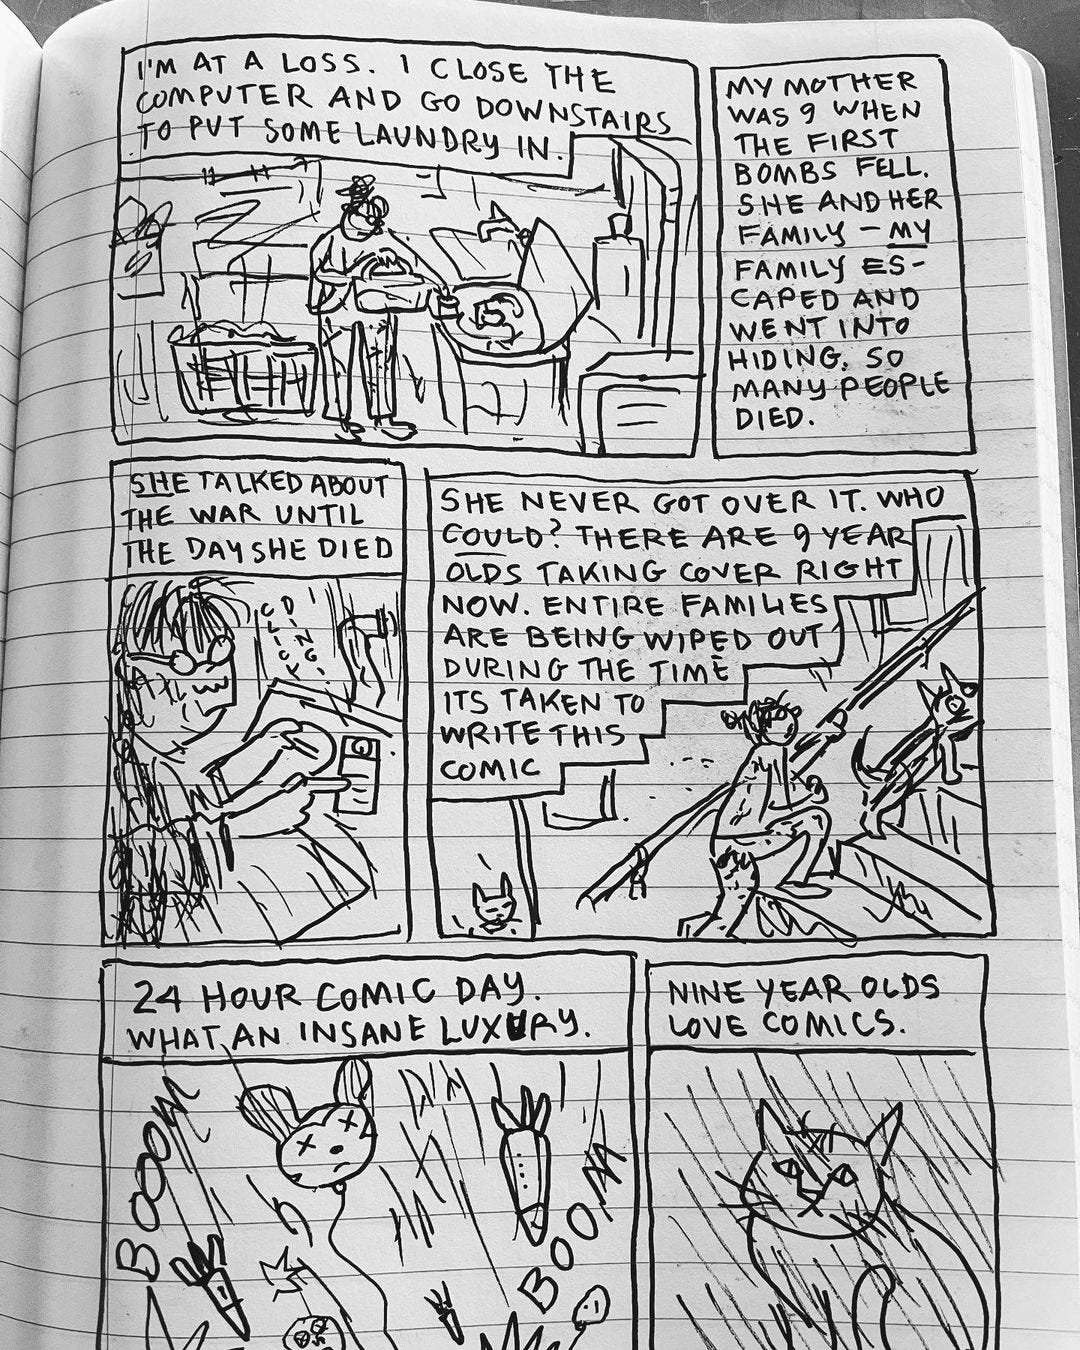 I'M AT A LOSS. I CLOSE THE
COMPUTER AND GO DOWNSTAIRS
TO PUT SOME LAUNDRY IN.
MY MOTHER
WAS 9 WHEN
THE FIRST
BOMBS FELL.
SHE AND HER
FAMILY – MY
FAMILY ES-
CAPED AND
WENT INTO
HIDING. SO
MANY PEOPLE
DIED.
SHE TALKED ABOUT
THE WAR UNTIL
THE DAY SHE DIED
CLICK
DING
SHE NEVER GOT OVER IT. WHO
COULD? THERE ARE 9 YEAR
OLDS TAKING COVER RIGHT
NOW. ENTIRE FAMILIES
ARE BEING WIPED OUT
DURING THE TIME
ITS TAKEN TO
WRITE THIS
COMIC
24 HOUR COMIC DAY.
WHAT AN INSANE LUXURY.
BOOM
BOOM
NINE YEAR OLDS
LOVE COMICS.